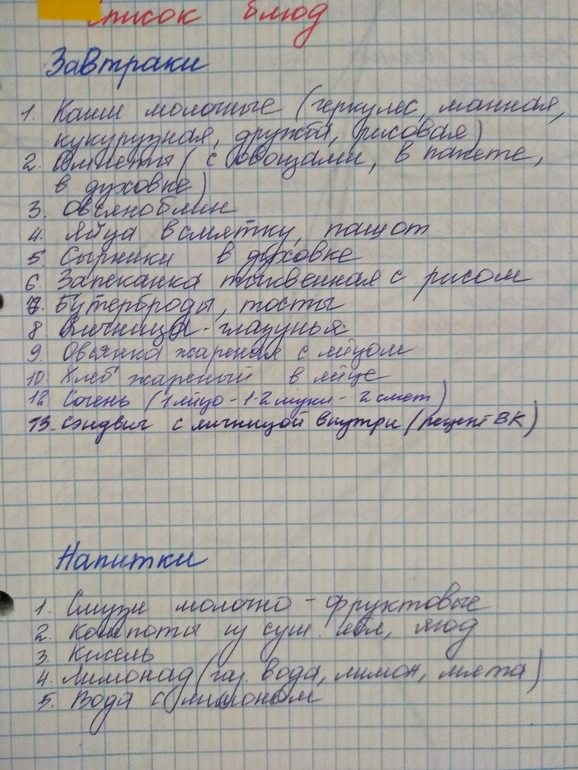 Список блюд
Завтраки
1. Каши молочные (геркулес, манная,
кукурузная, дружба, рисовая)
2. Омлеты (с овощами, в пакете,
в духовке)
3. Овсяноблин
4. Яйца всмятку, пашот
5. Сырники в духовке
6. Запеканка тыквенная с рисом
7. Бутерброды, тосты
8. Яичница-глазунья
9. Овсянка жареная с яйцом
10. Хлеб жареный в яйце
12. Сочень (1 яйцо - 1-2 муки - 2 смет)
13. Сэндвич с яичницой внутри (рецепт ВК)
Напитки
1. Смузи молочно-фруктовые
2. Компоты из суш. ябл, ягод
3. Кисель
4. Лимонад (газ. вода, лимон, мята)
5. Вода с лимоном